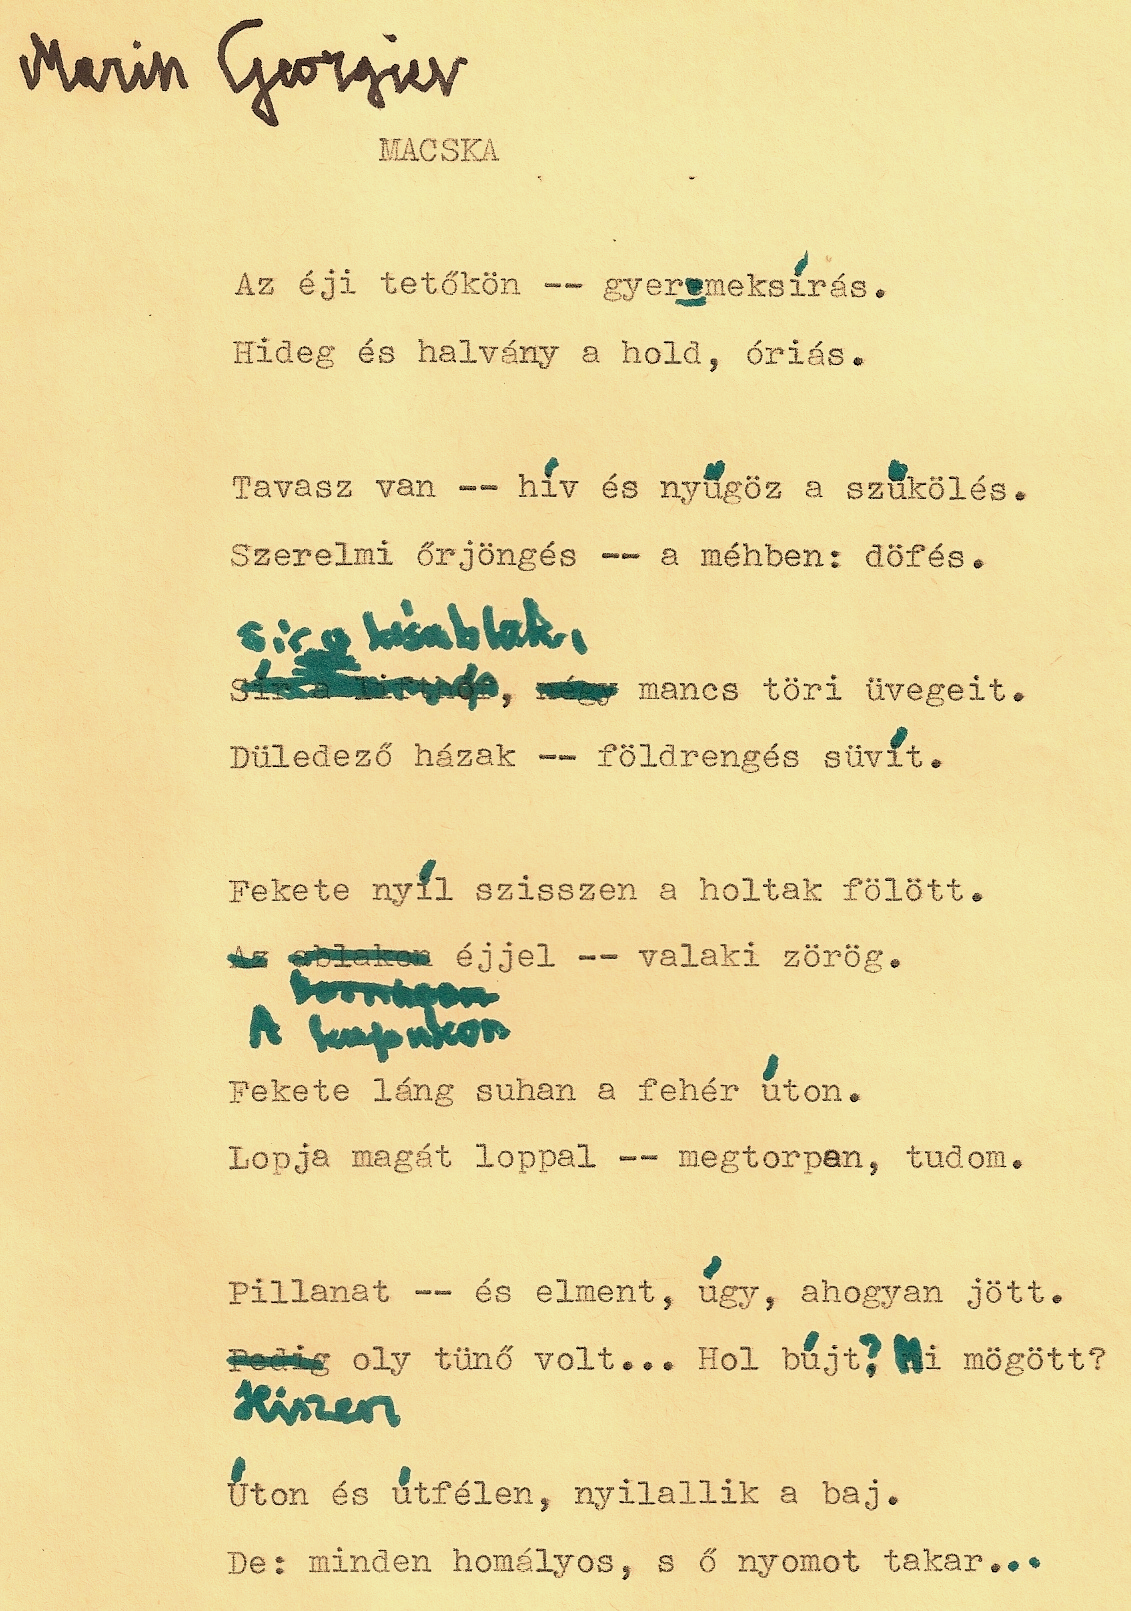 Marin Georgiev
MACSKA
Az éji tetőkön -- gyeremeksírás.
Hideg és halvány a hold, óriás.
Tavasz van -- hív és nyűgöz a szűkölés.
Szerelmi őrjöngés -- a méhben: döfés.
sir a kisablak,
Sír a, négy mancs töri üvegeit.
Düledező házak -- földrengés süvít.
Fekete nyíl szisszen a holtak fölött.
Az ablakon éjjel -- valaki zörög.
A kapukon
Fekete láng suhan a fehér úton.
Lopja magát loppal -- megtorpan, tudom.
Pillanat -- és elment, úgy, ahogyan jött.
Pedig oly tünő volt... Hol bújt? Mi mögött?
Hiszen
Úton és útfélen, nyilallik a baj.
De: minden homályos, s ő nyomot takar...